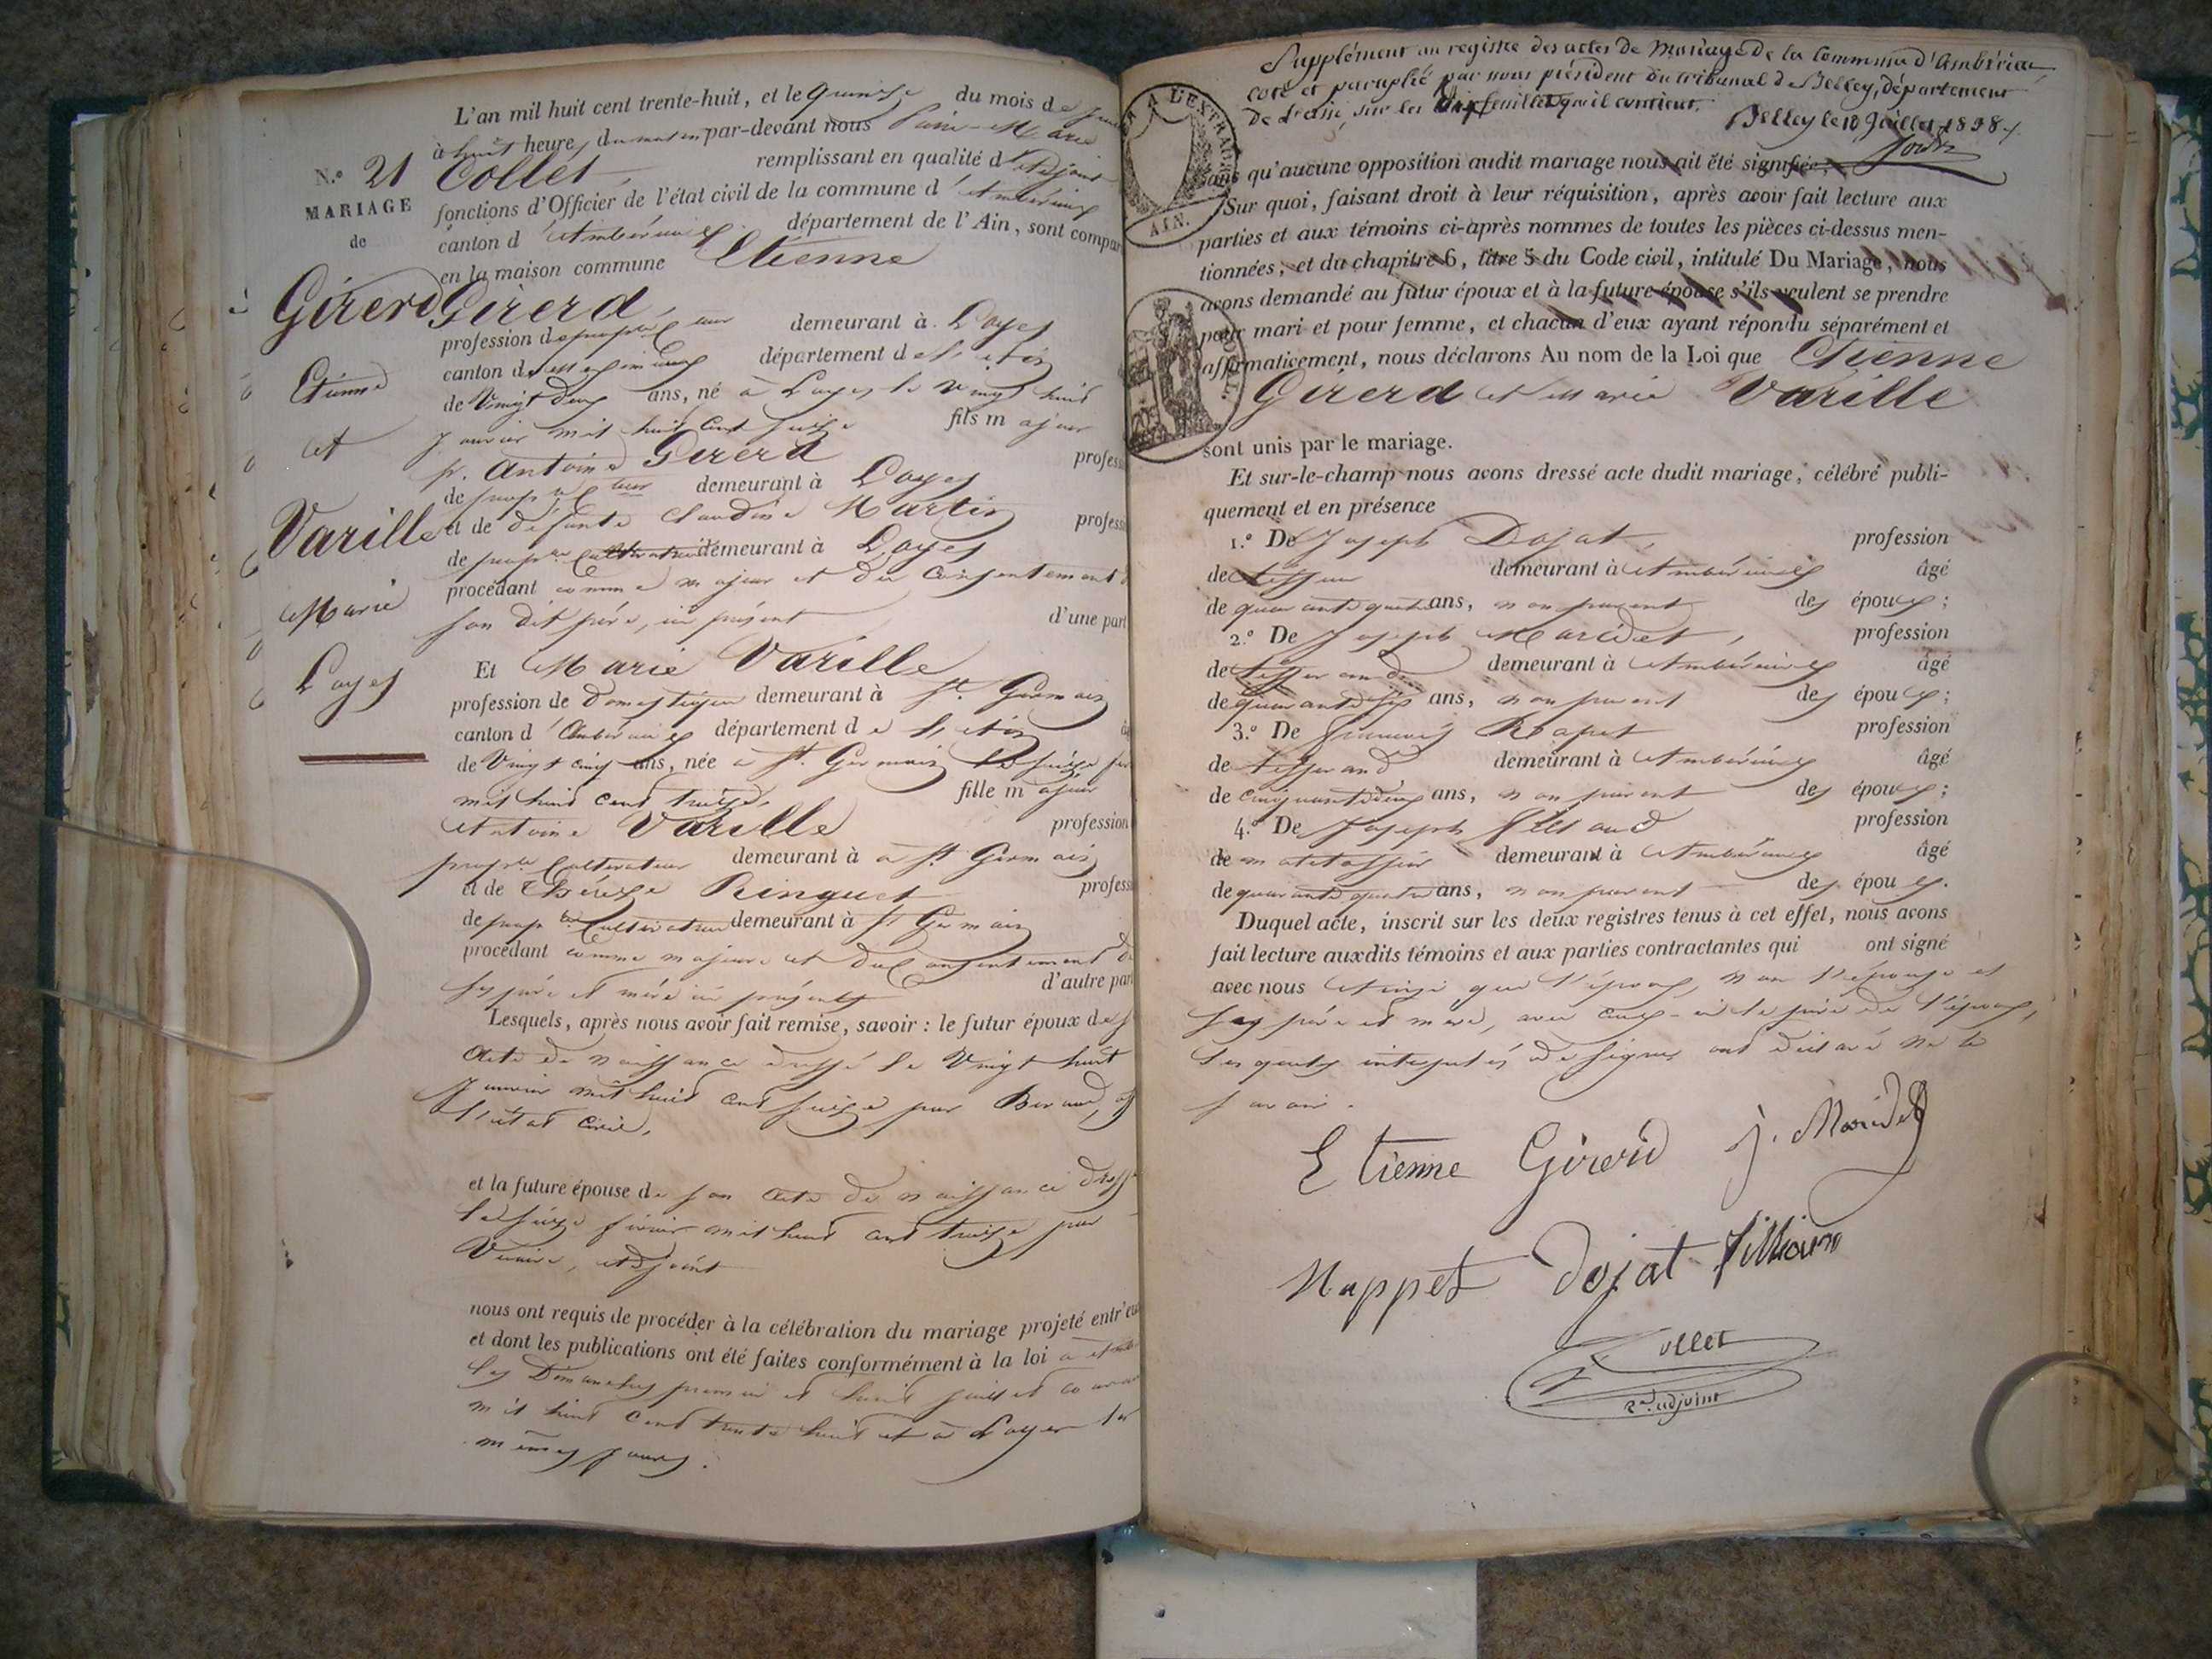 L'an mil huit cent trente-huit, et le quinze du mois de
à huit heures du matin par-devant nous Marie
N.º 21
Collet, remplissant en qualité d'adjoint
MARIAGE
fonctions d'Officier de l'état civil de la commune d'Ambérieux
de
canton d'Ambérieux département de l'Ain, sont compar
en la maison commune Etienne
Girerd
Girerd,
profession de demeurant à Loyes
Etienne
canton de département de l'Ain
de Vingt deux ans, né à Loyes le vingt huit
et
janvier mil huit cent seize fils majeur
p. Antoine Girerd profess
de demeurant à Loyes
Varille
et de défunte Claudine Martin profess
de demeurant à Loyes
Marie
procédant comme majeur et du consentement
son dit père, ici présent d'une part
Loyes
Et Marie Varille
profession de Domestique demeurant à St. Germain
canton d'Ambérieux département de l'Ain
de Vingt cinq ans, née à St. Germain le seize
mil huit cent treize, fille majeur
Antoine Varille profession
cultivateur demeurant à à St. Germain
et de Thérèse Ringuet profess
de demeurant à St Germain
procédant comme majeure et du consentement de
ses père et mère ici présents d'autre part
Lesquels, après nous avoir fait remise, savoir : le futur époux de s
acte de naissance dressé le Vingt huit
janvier mil huit cent seize par
l'état civil,
et la future épouse de son acte de naissance dressé
le seize février mil huit cent treize par
adjoint
nous ont requis de procéder à la célébration du mariage projeté entr'eu
et dont les publications ont été faites conformément à la loi à
les Dimanches premier et huit juillet courant
mil huit cent trente huit et à Loyes les
mêmes jours.
Supplément au registre des actes de Mariage de la Commune d'Ambérieu
coté et paraphé par nous président du tribunal de Belley, département
de l'Ain, sur les feuillets qu'il contient.
Belley le 10 Juillet 1838.
A L'EXTRA
AIN.
sans qu'aucune opposition audit mariage nous ait été signifiée;
Sur quoi, faisant droit à leur réquisition, après avoir fait lecture aux
parties et aux témoins ci-après nommes de toutes les pièces ci-dessus men-
tionnées, et du chapitre 6, titre 5 du Code civil, intitulé Du Mariage, nous
avons demandé au futur époux et à la future épouse s'ils veulent se prendre
pour mari et pour femme, et chacun d'eux ayant répondu séparément et
affirmativement, nous déclarons Au nom de la Loi que Etienne
Girerd et Marie Varille
sont unis par le mariage.
Et sur-le-champ nous avons dressé acte dudit mariage, célébré publi-
quement et en présence
1.º De Joseph Dojat, profession
de demeurant à Ambérieux âgé
de quarante quatre ans, non parent des époux;
2.º De Joseph Maridet, profession
de tisserand demeurant à Ambérieux âgé
de quarante six ans, non parent des époux;
3.º De François profession
de tisserand demeurant à Ambérieux âgé
de cinquante deux ans, non parent des époux;
4.º De Joseph profession
de demeurant à Ambérieux âgé
de quarante quatre ans, non parent des époux.
Duquel acte, inscrit sur les deux registres tenus à cet effet, nous avons
fait lecture auxdits témoins et aux parties contractantes qui ont signé
avec nous ainsi que l'époux, non l'épouse et
ses père et mère, avec le père de l'époux,
lesquels de signer ont déclaré ne le
savoir.
Etienne Girerd J. Maridet
Nappet Dojat
Collet
2e. adjoint